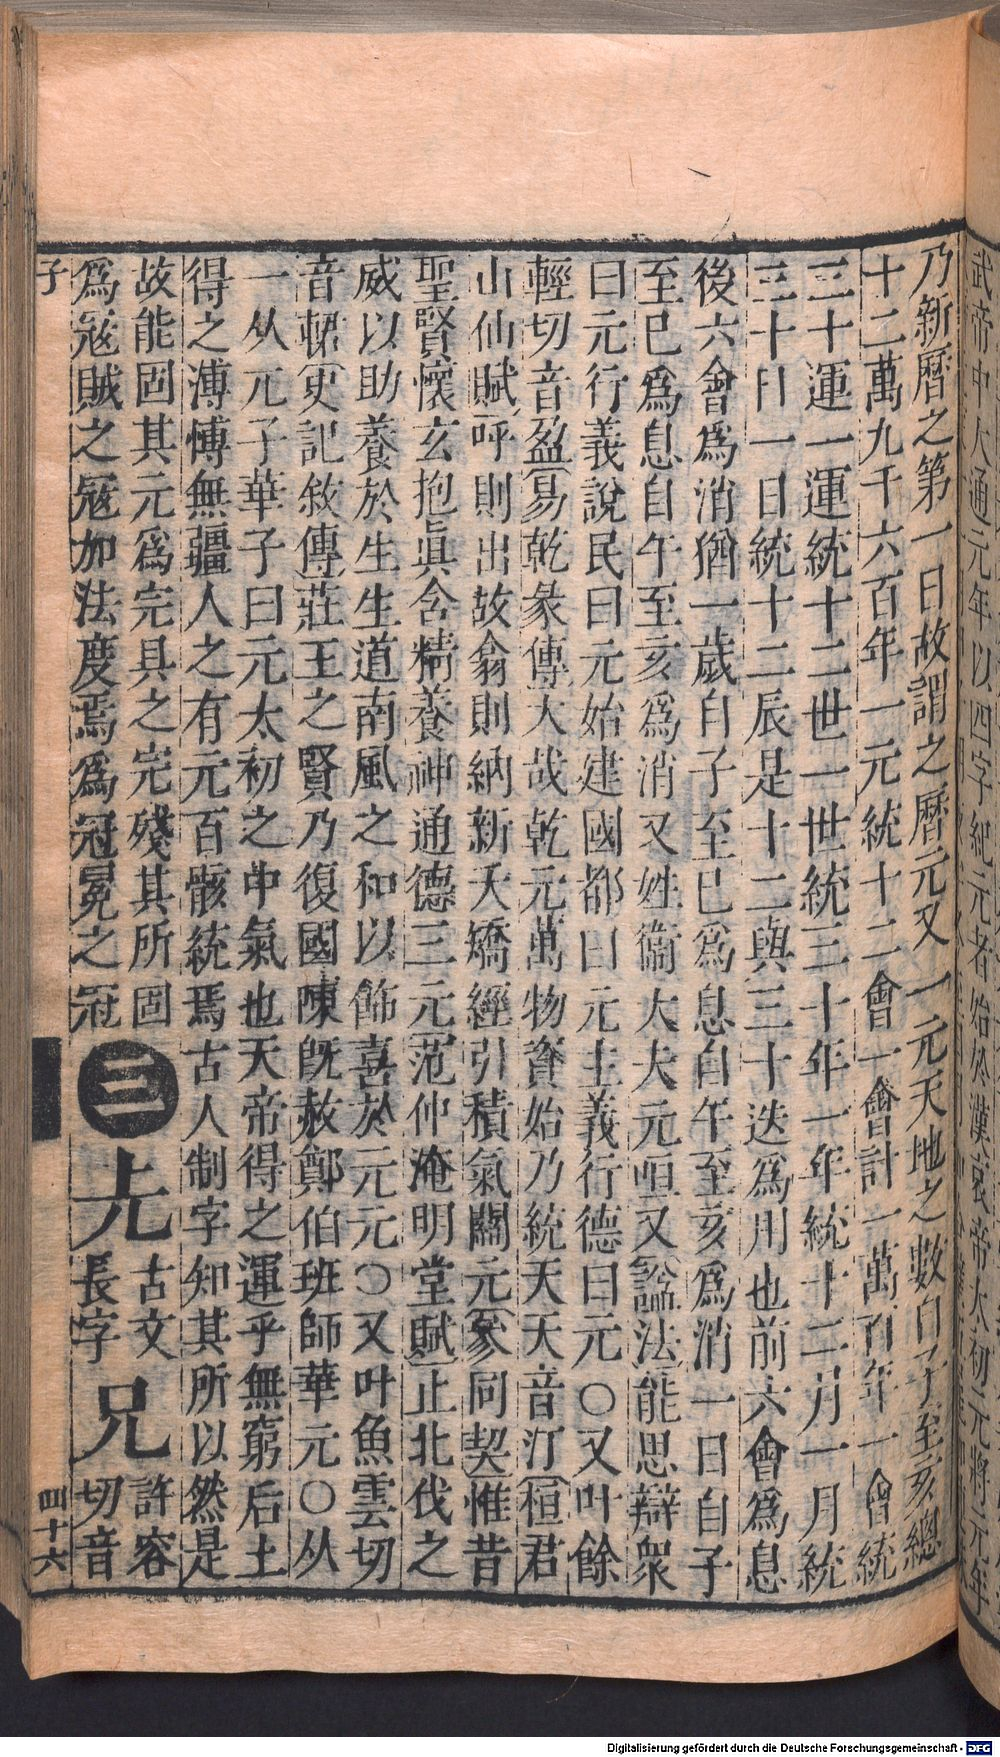 武帝中大通元年以四字紀元者始於漢哀帝太初元將元年
乃新曆之第一日故謂之曆元又一元天地之數自子至亥總
十二萬九千六百年一元統十二會一會計一萬八百年一會統
三十運一運統十二世一世統三十年一年統十二月一月統
三十日一日統十二辰是十二與三十迭爲用也前六會爲息
後六會爲消猶一歲自子至巳爲息自午至亥爲消一日自子
至巳爲息自午至亥爲消又姓衞大夫元咺又諡法能思辯衆
曰元行義說民曰元始建國都曰元主義行德曰元〇又叶餘
輕切音盈易乾彖傳大哉乾元萬物資始乃統天天音汀桓君
山仙賦呼則出故翕則納新夭矯經引積氣關元參同契惟昔
聖賢懷玄抱眞含精養神通德三元范仲淹明堂賦止北伐之
威以助養於生生道南風之和以飾喜於元元〇又叶魚雲切
音輑史記敘傳莊王之賢乃復國陳旣赦鄭伯班師華元〇从
一从兀子華子曰元太初之中氣也天帝得之運乎無窮后土
得之溥博無疆人之有元百骸統焉古人制字知其所以然是
故能固其元爲完具之完殘其所固
爲寇賊之寇加法度焉爲冠冕之冠
三
兂
古文
長字
兄
許容
切音
子
四十六
Digitalisierung gefördert durch die Deutsche Forschungsgemeinschaft - DFG